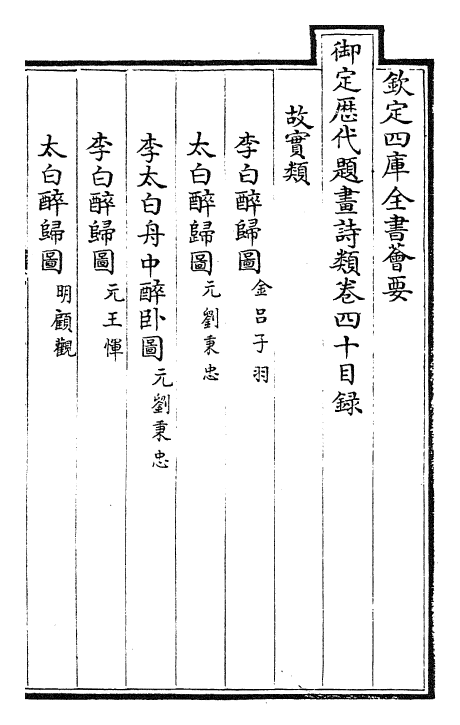 欽定四庫全書薈要
御定歴代題畫詩類卷四十目録
故實類
李白醉歸圖 金呂子羽
太白醉歸圖 元劉秉忠
李太白舟中醉卧圖 元劉秉忠
李白醉歸圖 元王惲
太白醉歸圖 明顧觀